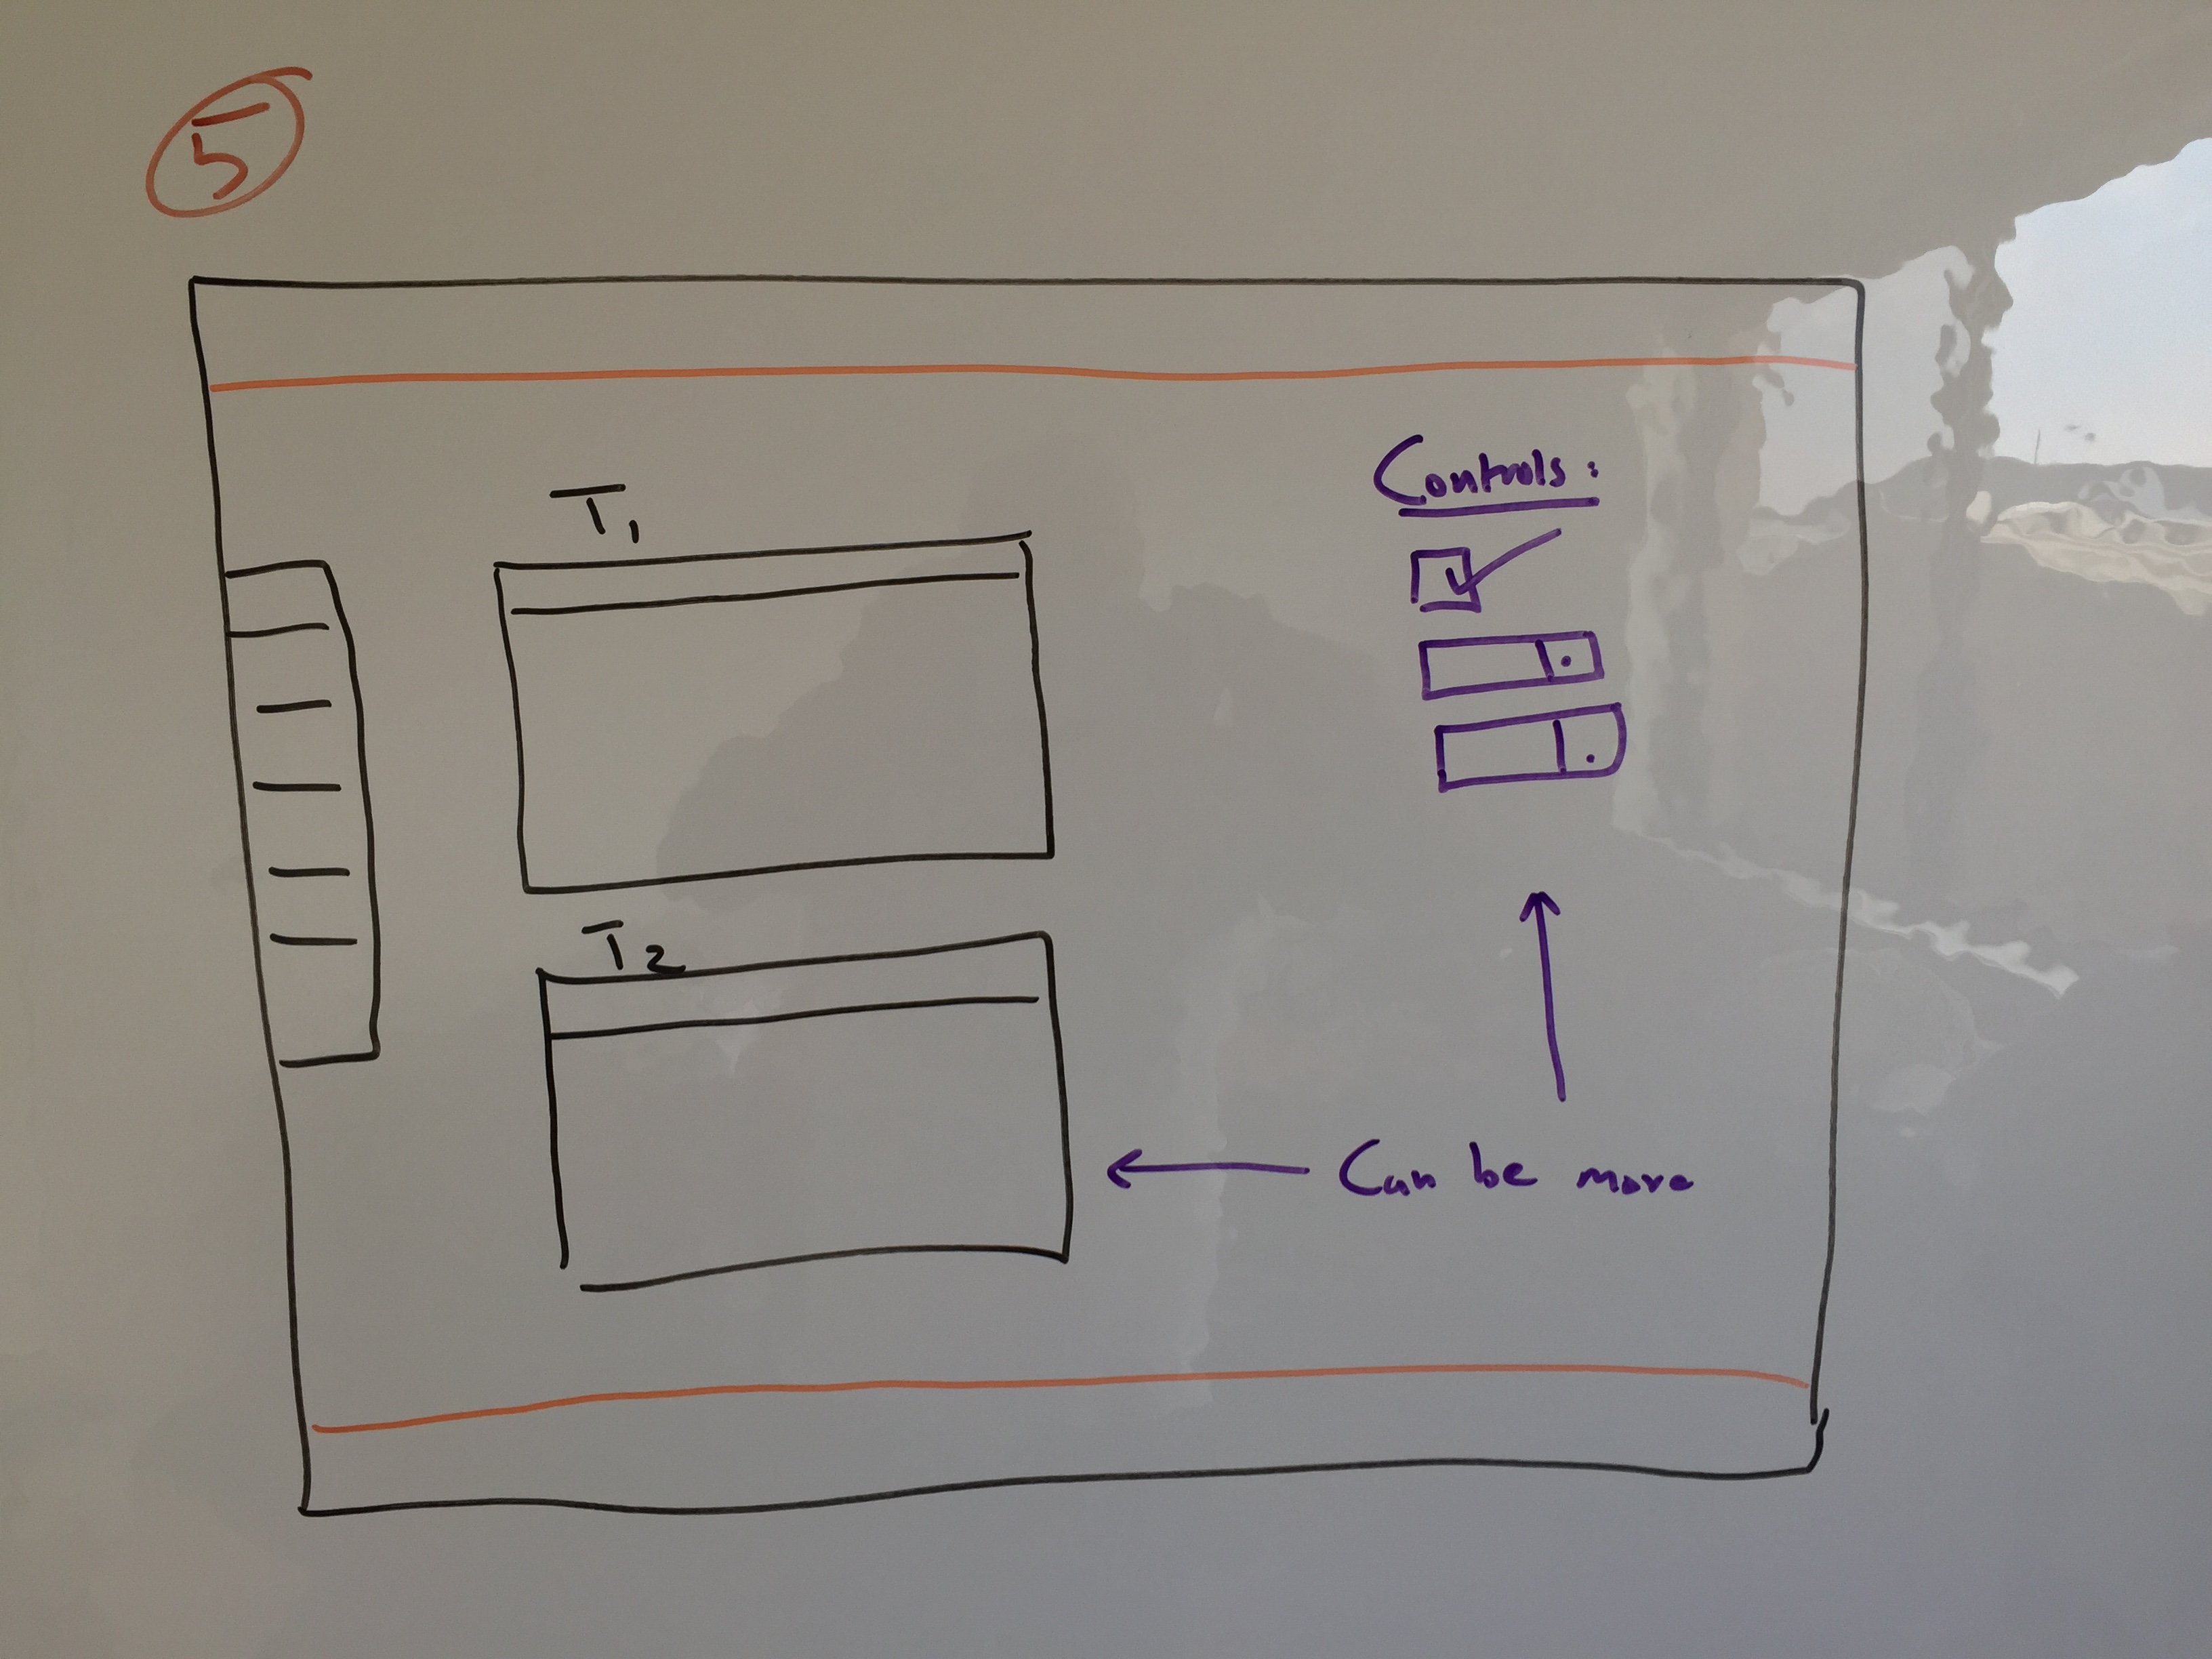 5
T1
Controls:
T2
Can be more